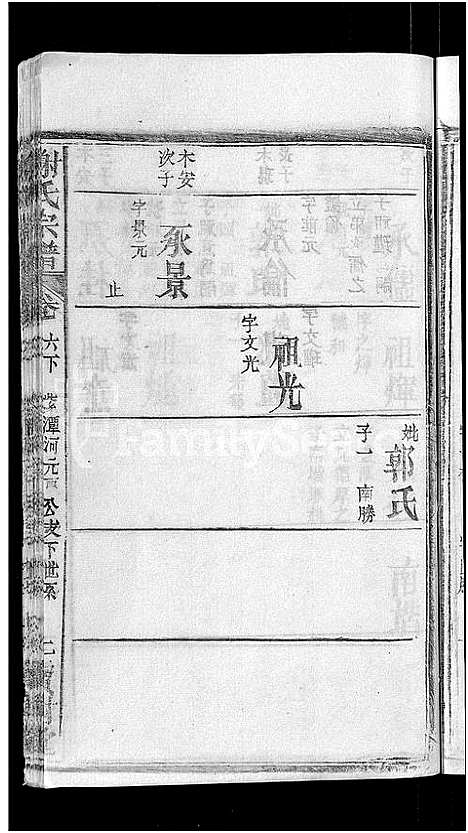 妣郭氏
子一 南勝
祖光
字文光
木安
次子
永景
字景元
止
謝氏宗譜
六下
潭河元
公支下世系
FamilySearch